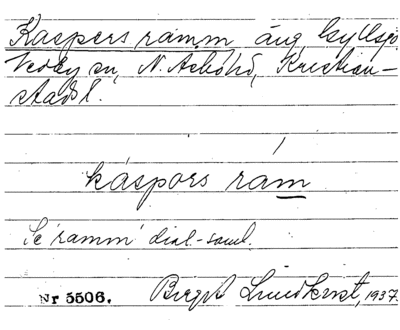 Kaspers ramm äng, Kyllsg.
Vedby sn, N. Åsbohd, Kristian-
stads l.
káspərs ram
Se 'ramm' dial-saml.
Nr 5506. Birgit Lindkvist, 1937.